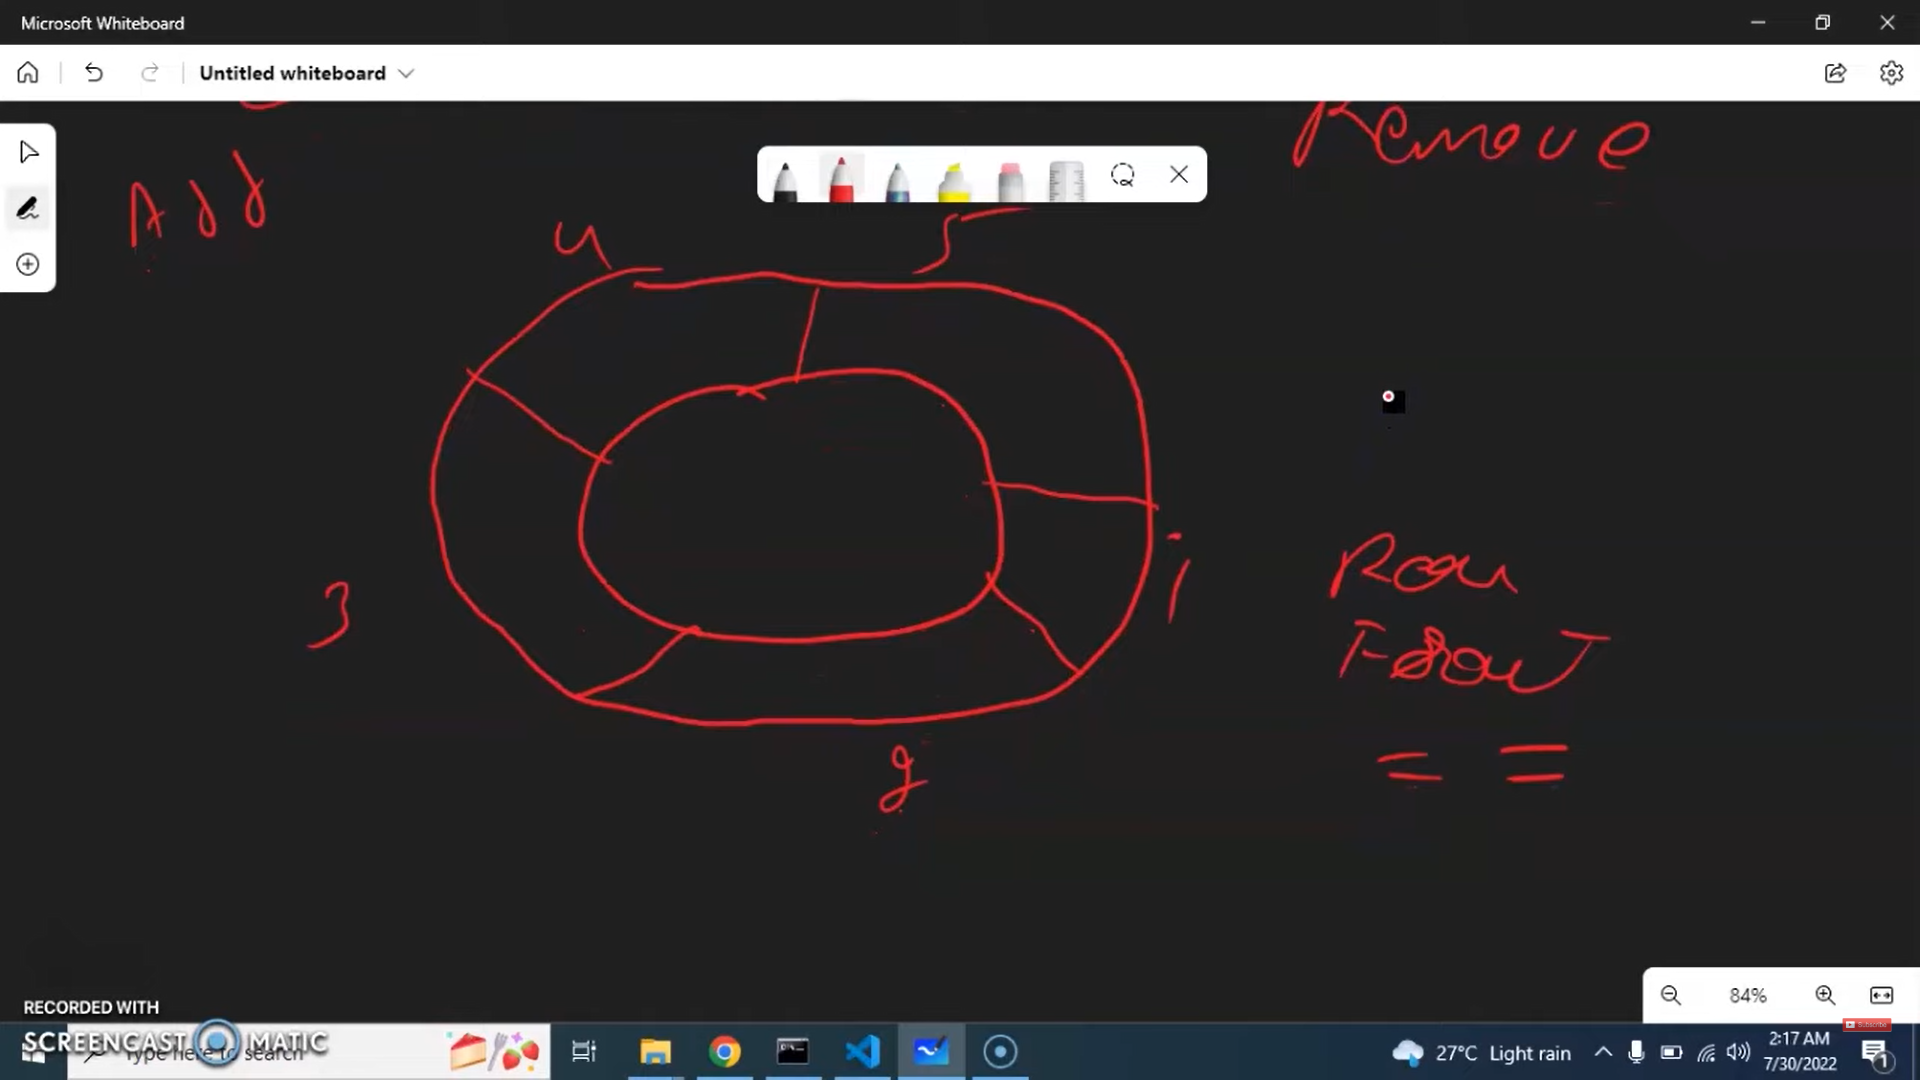 Microsoft Whiteboard
Untitled whiteboard
Add
Remove
4
5
3
i
Front
= =
84%
RECORDED WITH
SCREENCAST MATIC
Type here to search
Subscribe
27°C Light rain
2:17 AM
7/30/2022
1